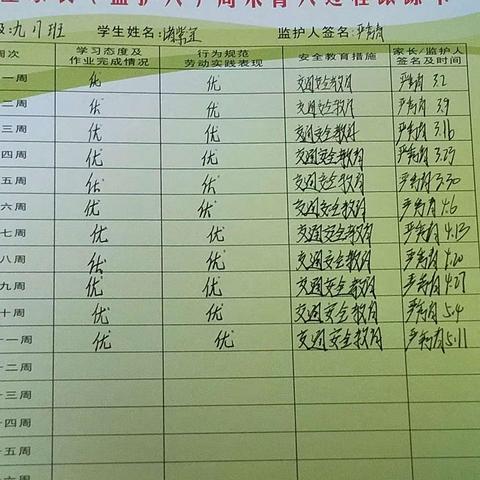 人 周末育人过程跟踪卡
级:九 班 学生姓名: 监护人签名:
周次 学习态度及作业完成情况 行为规范劳动实践表现 安全教育措施 家长/监护人签名及时间
一周 优 优 交通安全教育 3.2
二周 优 优 交通安全教育 3.9
三周 优 优 交通安全教育 3.16
四周 优 优 交通安全教育 3.23
五周 优 优 交通安全教育 3.30
六周 优 优 交通安全教育 4.6
七周 优 优 交通安全教育 4.13
八周 优 优 交通安全教育 4.20
九周 优 优 交通安全教育 4.27
十周 优 优 交通安全教育 5.4
十一周 优 优 交通安全教育 5.11
十二周
十三周
十四周
十五周
十六周